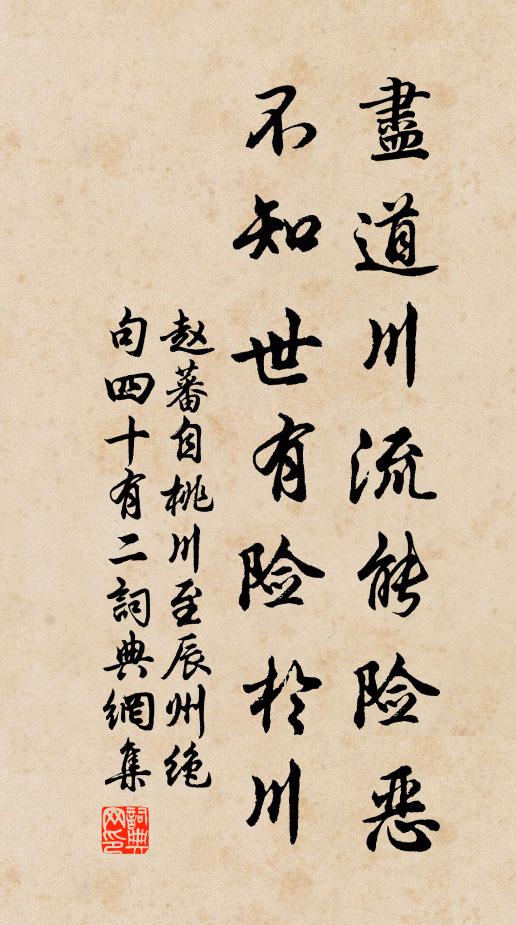 盡道川流能险惡
不知世有险於川
赵蕃自桃川至辰州绝
句四十有二詞典網集
詞典
网印